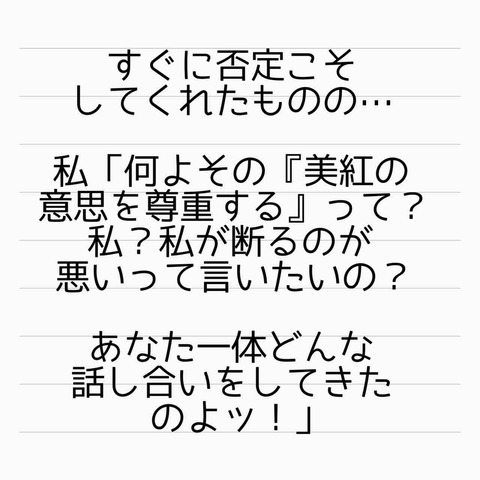 すぐに否定こそ
してくれたものの…
私「何よその『美紅の
意思を尊重する』って？
私？私が断るのが
悪いって言いたいの？
あなた一体どんな
話し合いをしてきた
のよッ！」